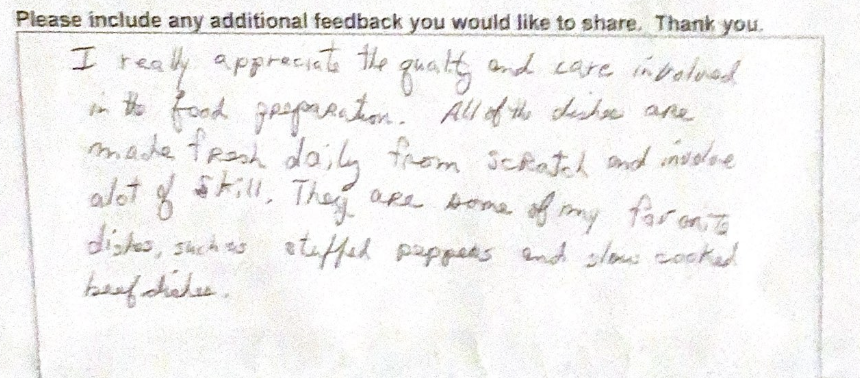 Please include any additional feedback you would like to share. Thank you.
I really appreciate the quality and care involved
in the food preparation. All of the dishes are
made fresh daily from scratch and involve
alot of skill. They are some of my favorite
dishes, such as stuffed peppers and slow cooked
beef dishes.